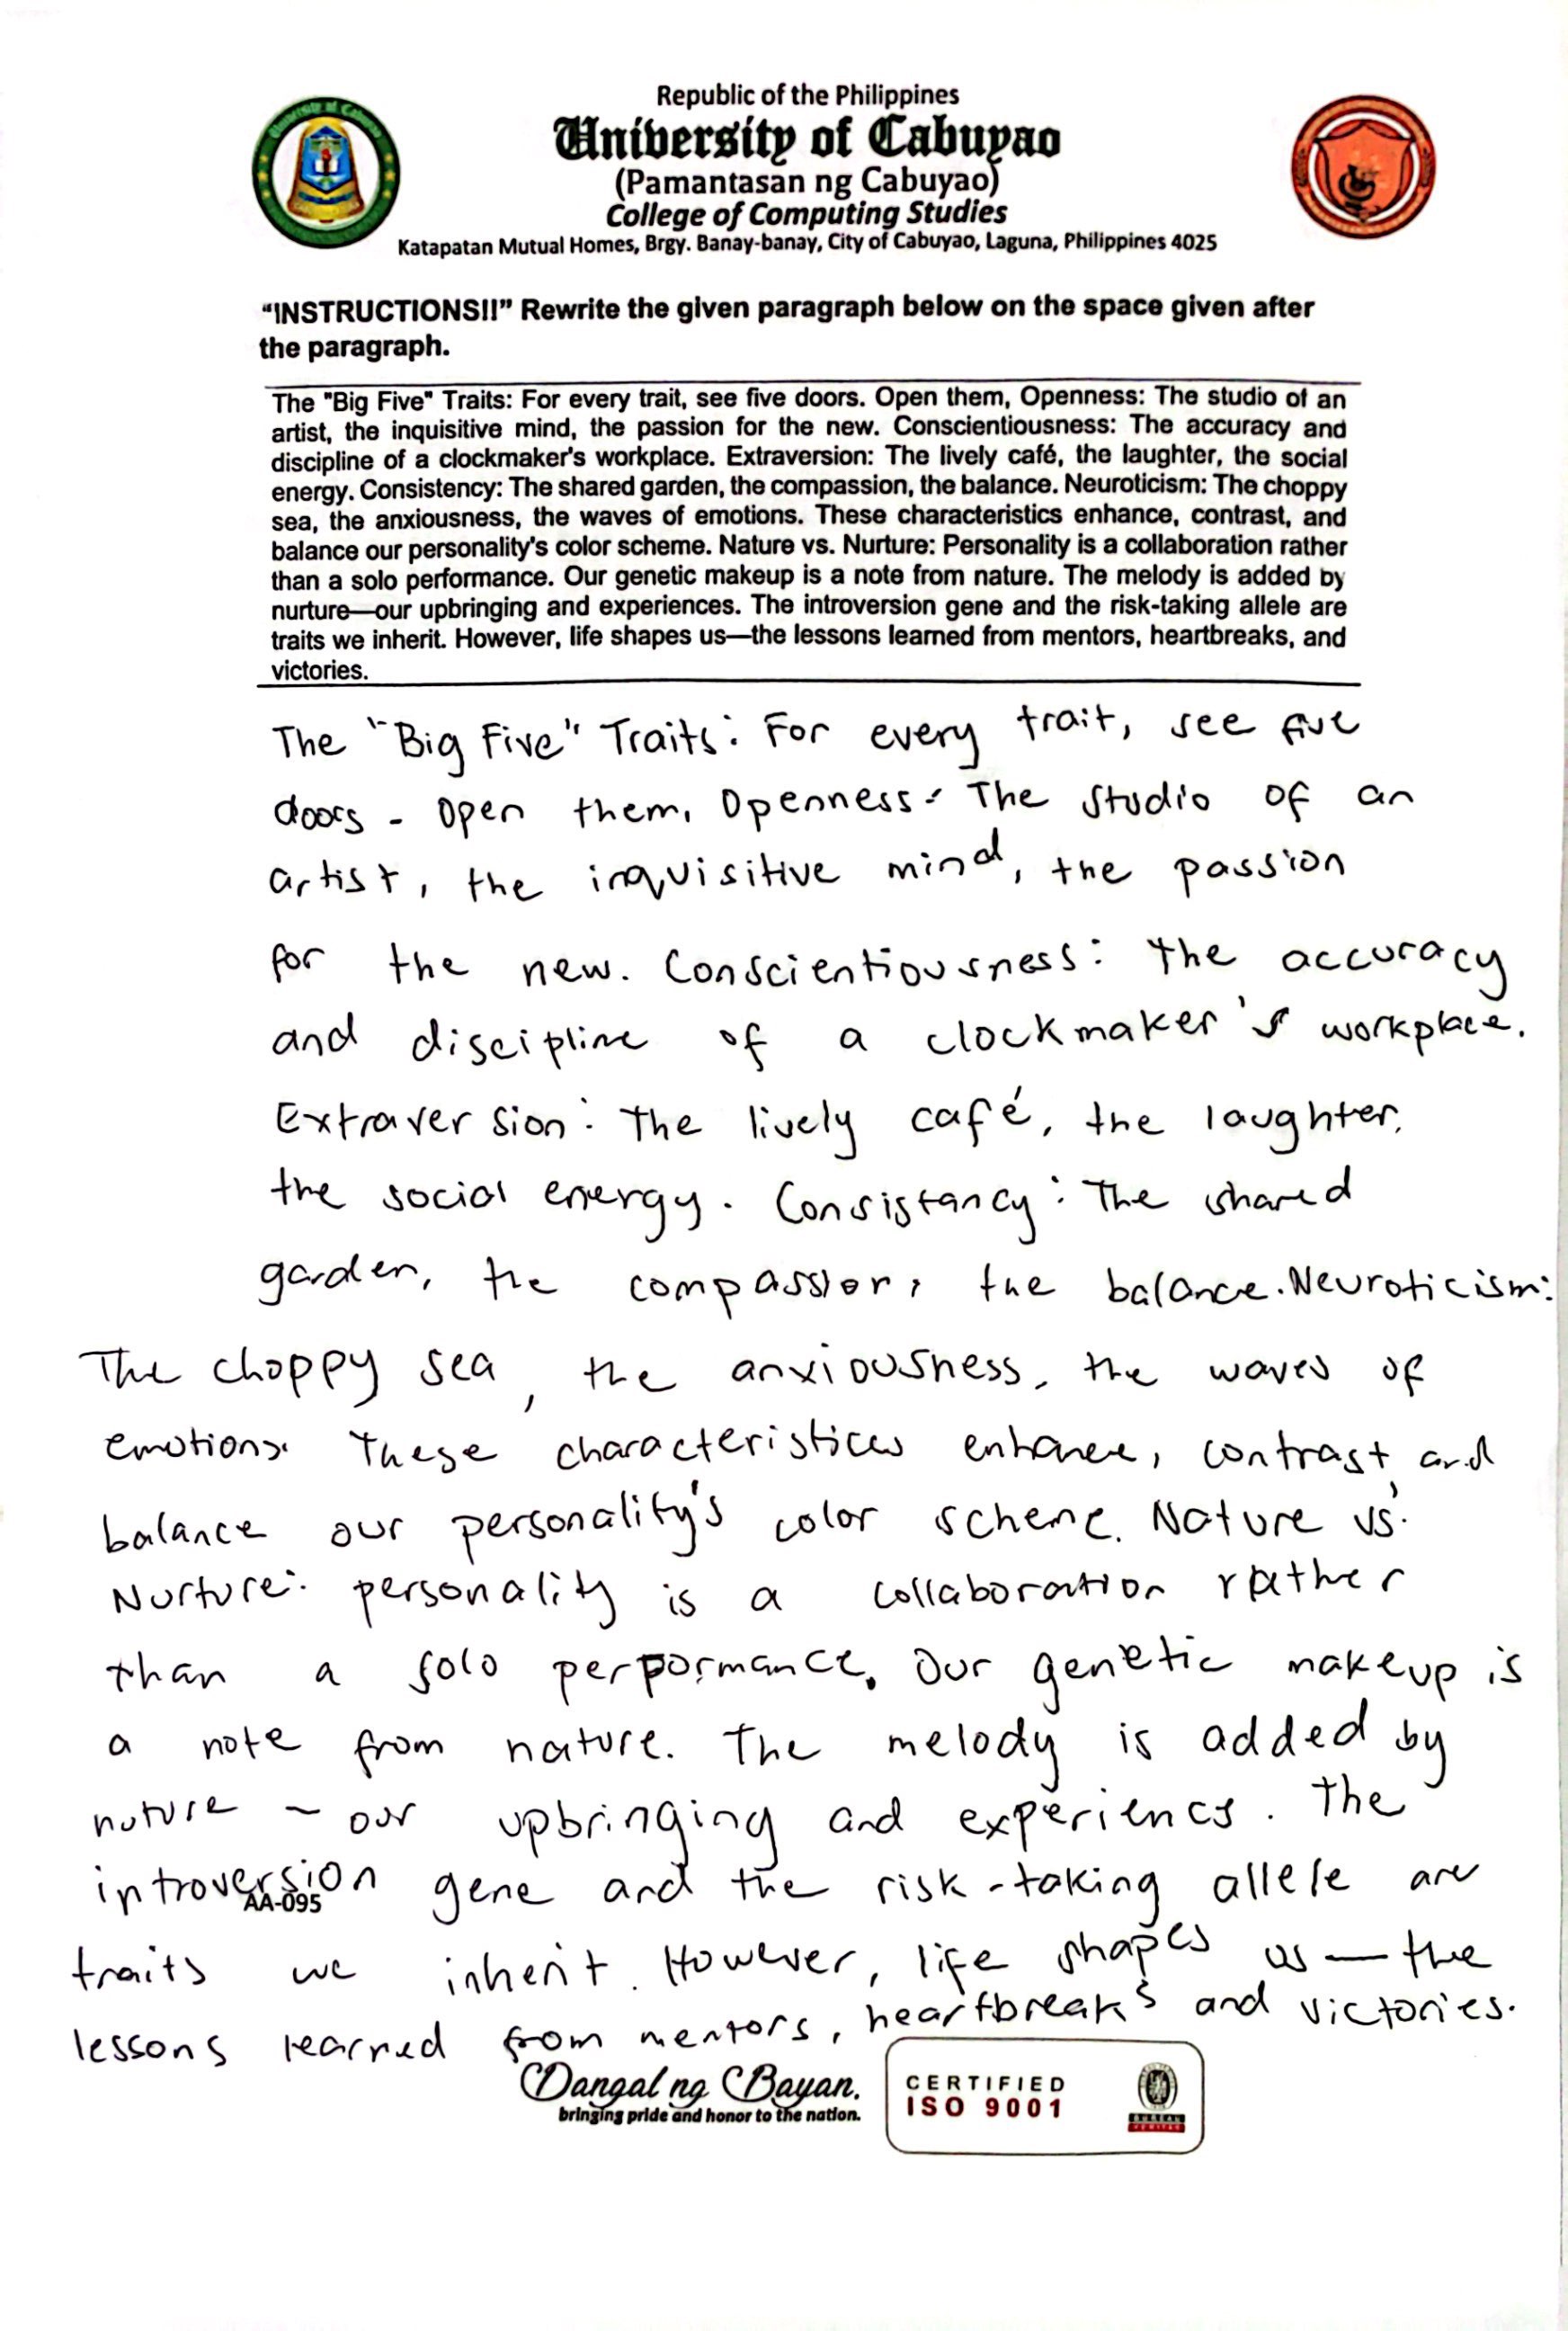 Republic of the Philippines
University of Cabuyao
(Pamantasan ng Cabuyao)
College of Computing Studies
Katapatan Mutual Homes, Brgy. Banay-banay, City of Cabuyao, Laguna, Philippines 4025
“INSTRUCTIONS!!” Rewrite the given paragraph below on the space given after
the paragraph.
The "Big Five" Traits: For every trait, see five doors. Open them, Openness: The studio of an
artist, the inquisitive mind, the passion for the new. Conscientiousness: The accuracy and
discipline of a clockmaker's workplace. Extraversion: The lively café, the laughter, the social
energy. Consistency: The shared garden, the compassion, the balance. Neuroticism: The choppy
sea, the anxiousness, the waves of emotions. These characteristics enhance, contrast, and
balance our personality's color scheme. Nature vs. Nurture: Personality is a collaboration rather
than a solo performance. Our genetic makeup is a note from nature. The melody is added by
nurture—our upbringing and experiences. The introversion gene and the risk-taking allele are
traits we inherit. However, life shapes us—the lessons learned from mentors, heartbreaks, and
victories.
The "Big Five" Traits: For every trait, see five
doors - Open them, Openness: The studio of an
artist, the inquisitive mind, the passion
for the new. Conscientiousness: The accuracy
and discipline of a clockmaker's workplace.
Extraversion: The lively café, the laughter,
the social energy. Consistancy: The shared
garden, the compassion, the balance. Neuroticism:
The choppy sea, the anxiousness, the waves of
emotions. These characteristics enhance, contrast, and
balance our personality's color scheme. Nature vs.
Nurture: personality is a collaboration rather
than a solo performance. Our genetic makeup is
a note from nature. The melody is added by
nuture – our upbringing and experiencs. The
introversion gene and the risk-taking allele are
AA-095
traits we inherit. However, life shapes us — the
lessons learned from mentors, heartbreaks and victories.
Dangal ng Bayan.
bringing pride and honor to the nation.
CERTIFIED
ISO 9001
BUREAU
VERITAS